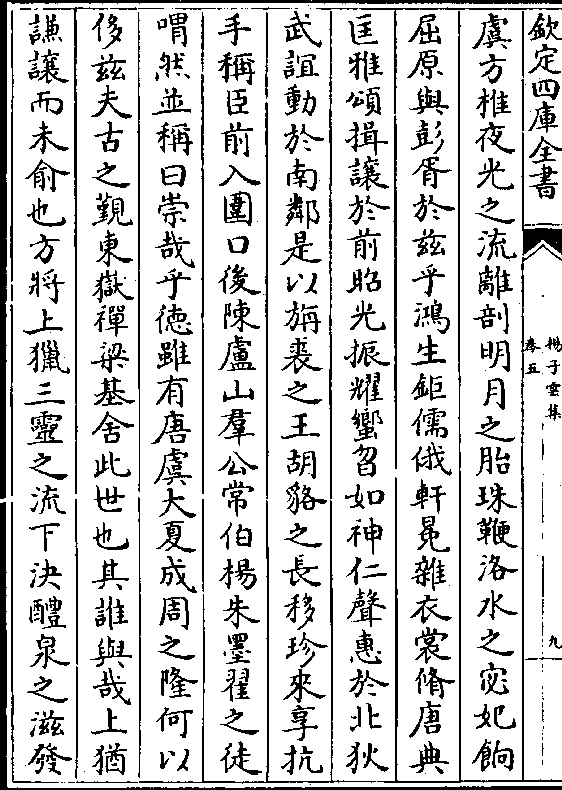 欽定四庫全書
揚子雲集
卷五
九
虞方椎夜光之流離剖明月之胎珠鞭洛水之宓妃餉
屈原與彭胥於兹乎鴻生鉅儒俄軒冕雜衣裳脩唐典
匡雅頌揖讓於前昭光振燿蠁曶如神仁聲惠於北狄
武誼動於南鄰是以旃裘之王胡貉之長移珍來享抗
手稱臣前入圍口後陳盧山羣公常伯楊朱墨翟之徒
喟然並稱曰崇哉乎徳雖有唐虞大夏成周之隆何以
侈兹夫古之覲東嶽禪梁基舍此世也其誰與哉上猶
謙讓而未俞也方將上獵三靈之流下決醴泉之滋發